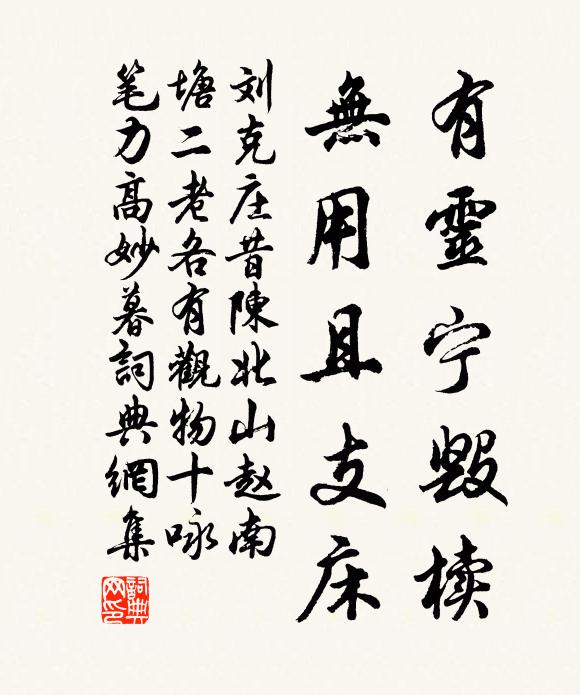 有靈宁毀椟
無用且支床
刘克庄昔陳北山赵南
塘二老各有觀物十咏
笔力高妙暮詞典網集
詞典网印